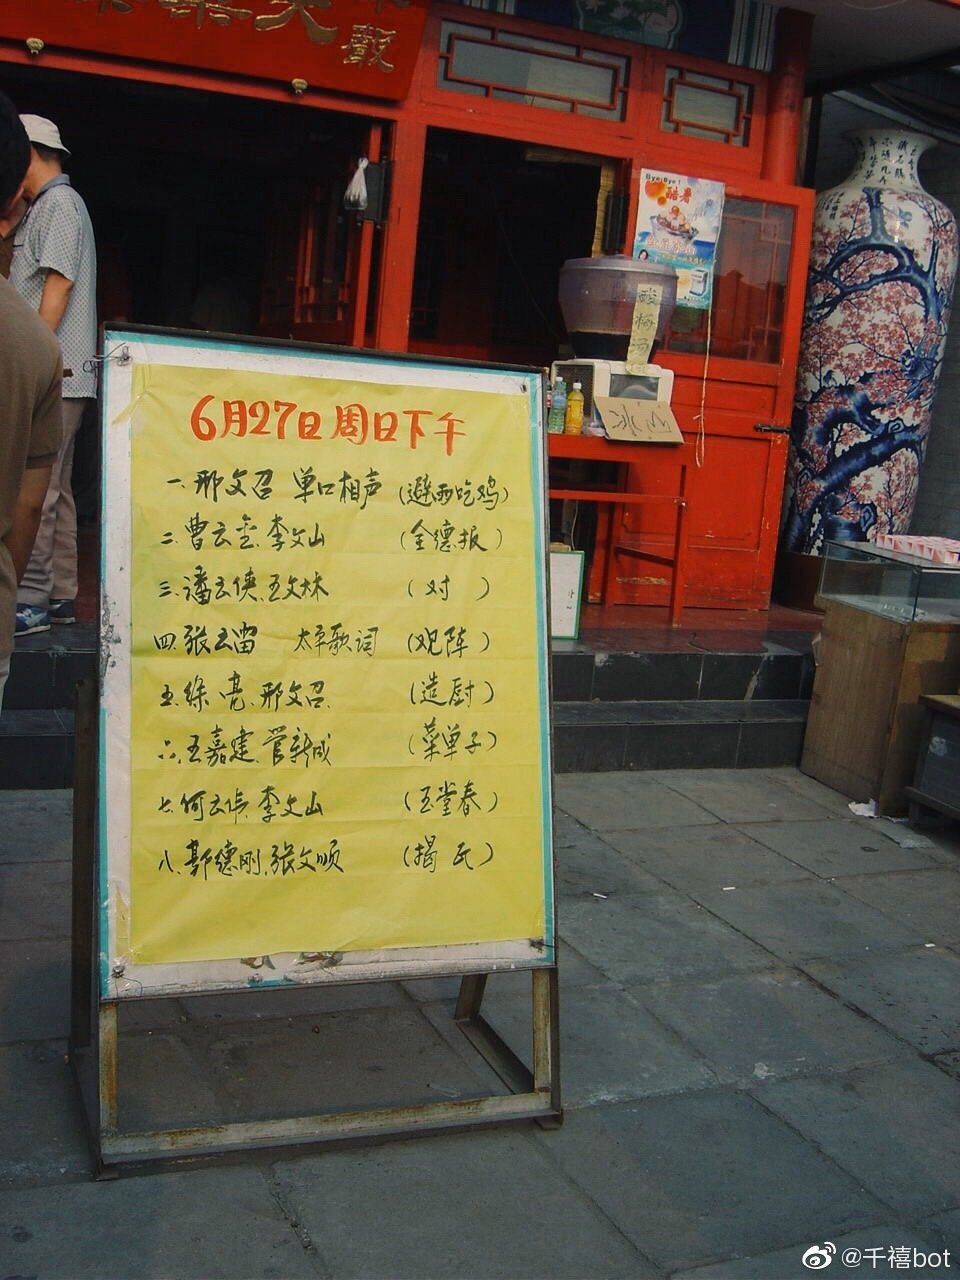 天
6月27日 周日下午
一、邢文召 单口相声 (避雨吃鸡)
二、曹云金、李文山 (全德报)
三、潘云侠、王文林 (对 )
四、张云雷 太平歌词 (观阵)
五、徐 亮、邢文召、 (造厨)
六、王嘉建、管新成 (菜单子)
七、何云伟、李文山 (玉堂春)
八、郭德刚、张文顺 (揭瓦)
Bye! Bye!
酷暑
酸梅汤
冰水
@千禧bot